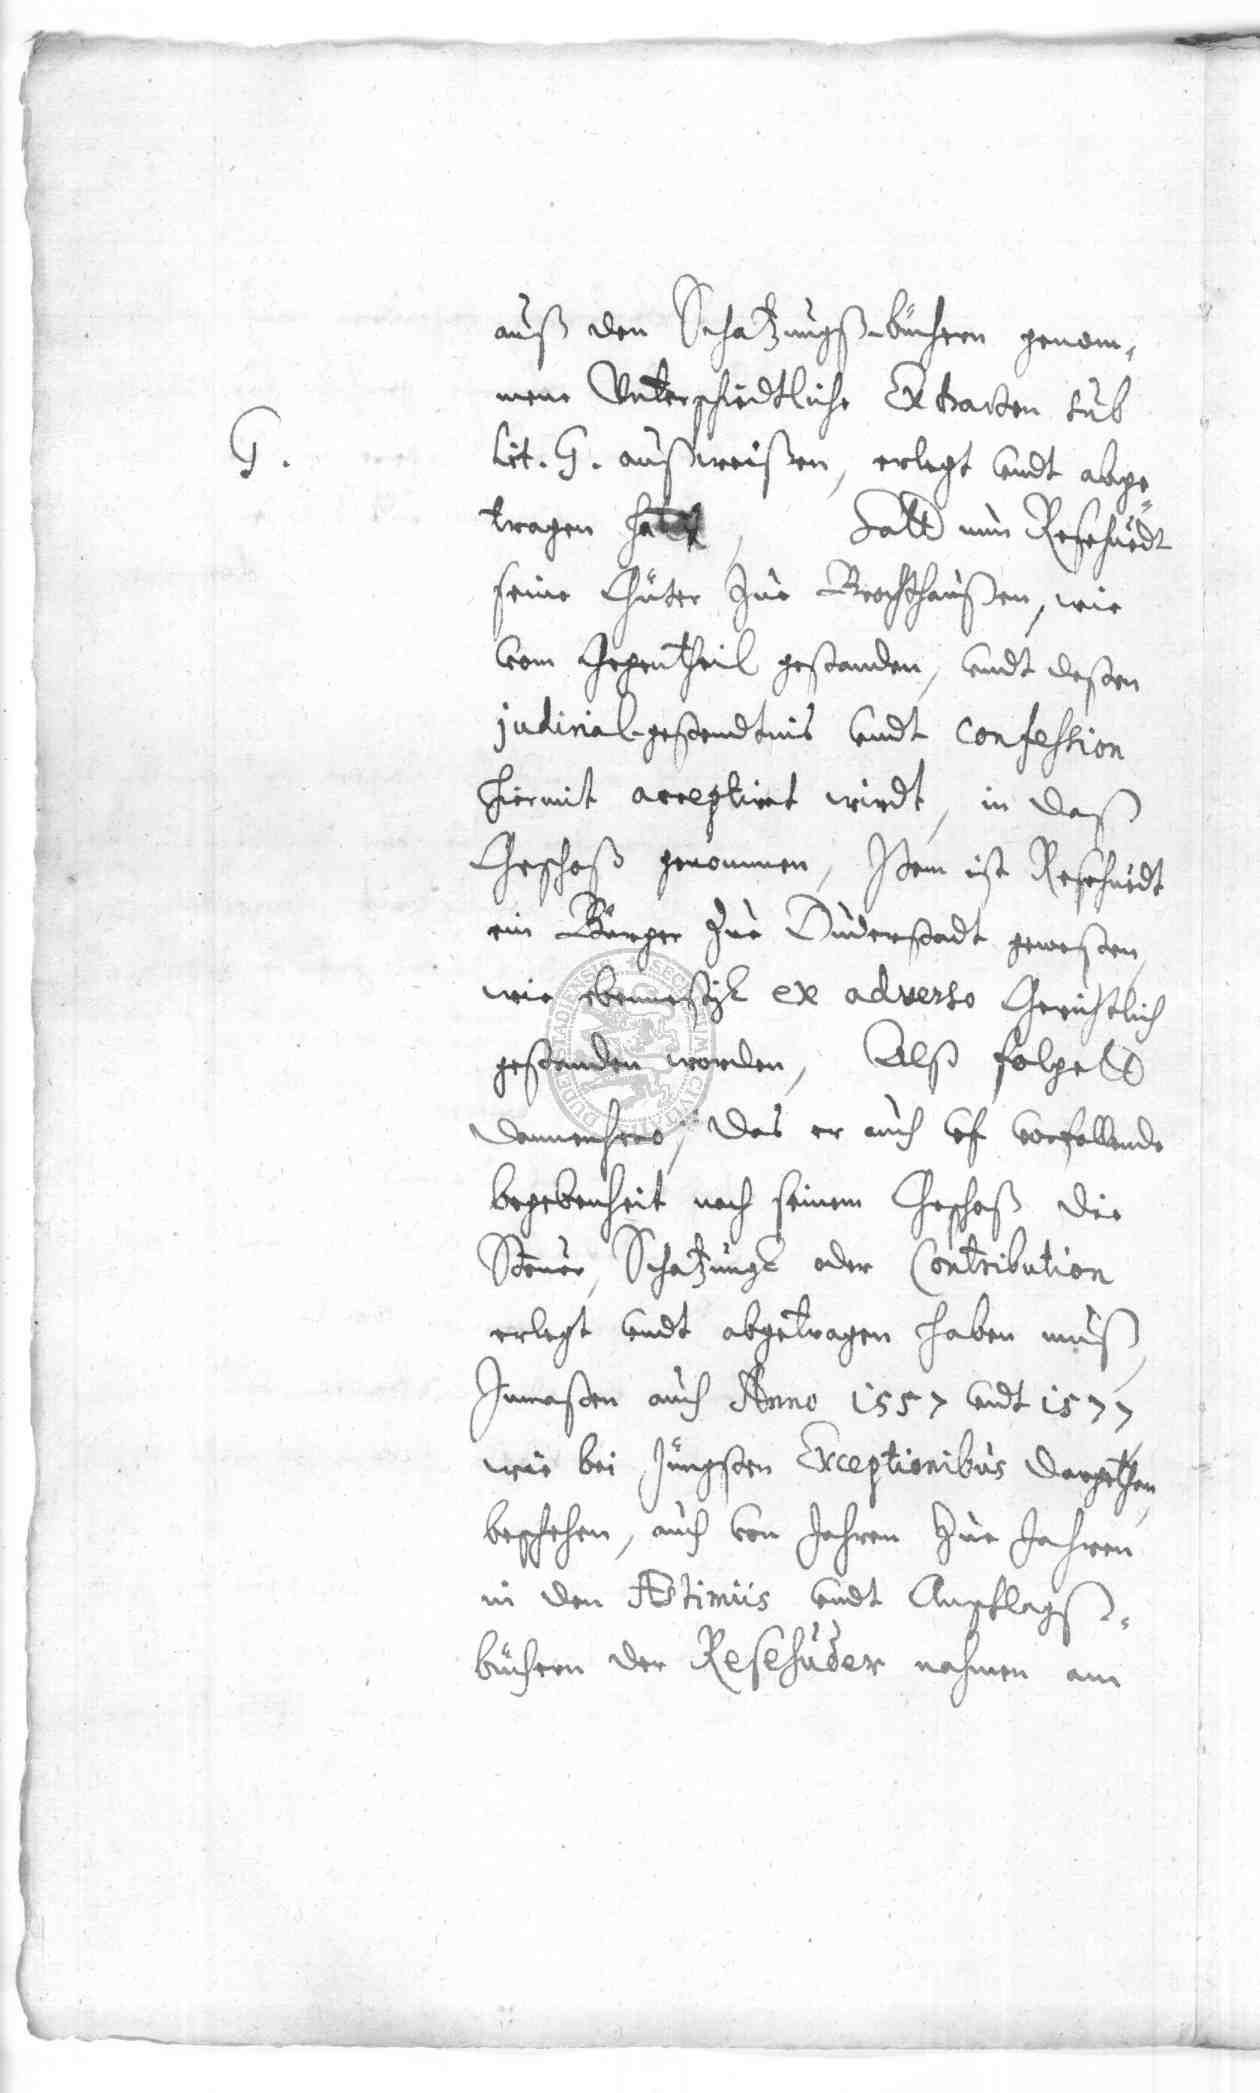 auß den Schatzungß-büchern genom-
mene Unterschiedtliche Extracten sub
G.
Lit. G. außweißen, erlegt undt abge-
tragen hatt, Hatt nun Resehuedt
seine Güter zue Brochthaußen, wie
vom Gegentheil gestanden, undt deßen
judicial-gestendtnis undt confession
hiermit acceptirt wirdt, in daß
Geschoß genommen, Item ist Resehuedt
ein Bürger zue Duderstadt geweßen,
wie ebenmeßig ex adverso Gerichtlich
gestanden worden, Alß folgett
dannenhero, das er auch uf vorfallende
begebenheit nach seinem Geschoß die
Steuer, Schatzung oder Contribution
erlegt undt abgetragen haben muß,
Inmaßen auch Anno 1557 undt 1577,
wie bei Jüngsten Exceptionibus dargethan,
beschehen, auch von Jahren zue Jahren
in den Æstimiis undt Anschlagß-
büchern der Resehuder nahmen am